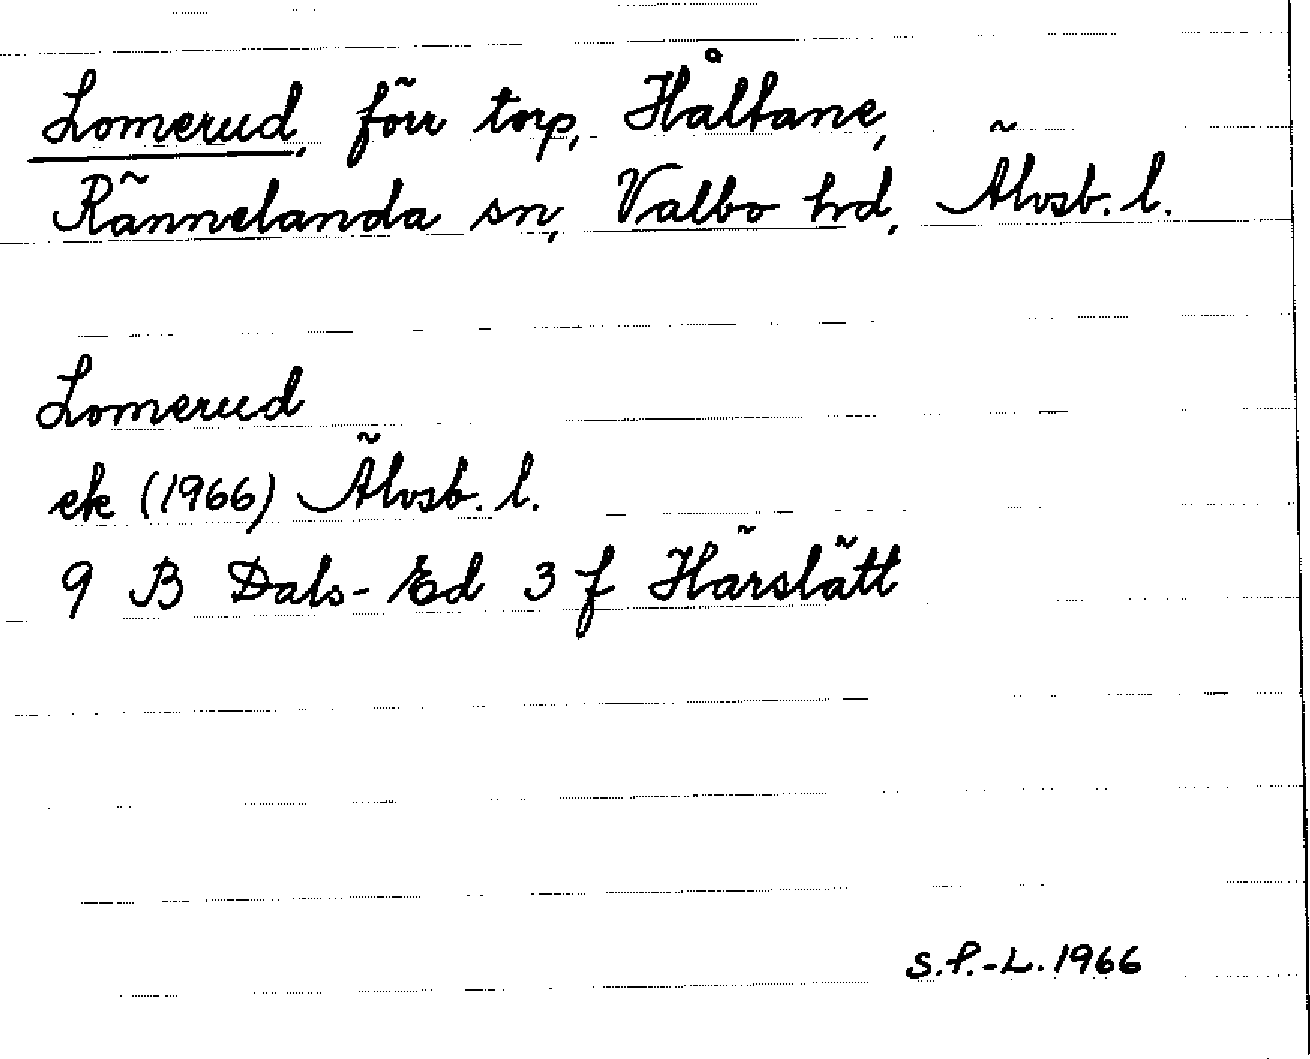 Lomerud, förr torp, Håltane,
Rännelanda sn, Valbo hd, Älvsb. l.
Lomerud
ek (1966) Älvsb. l.
9 B Dals-Ed 3 f Härslätt
S.P.-L. 1966